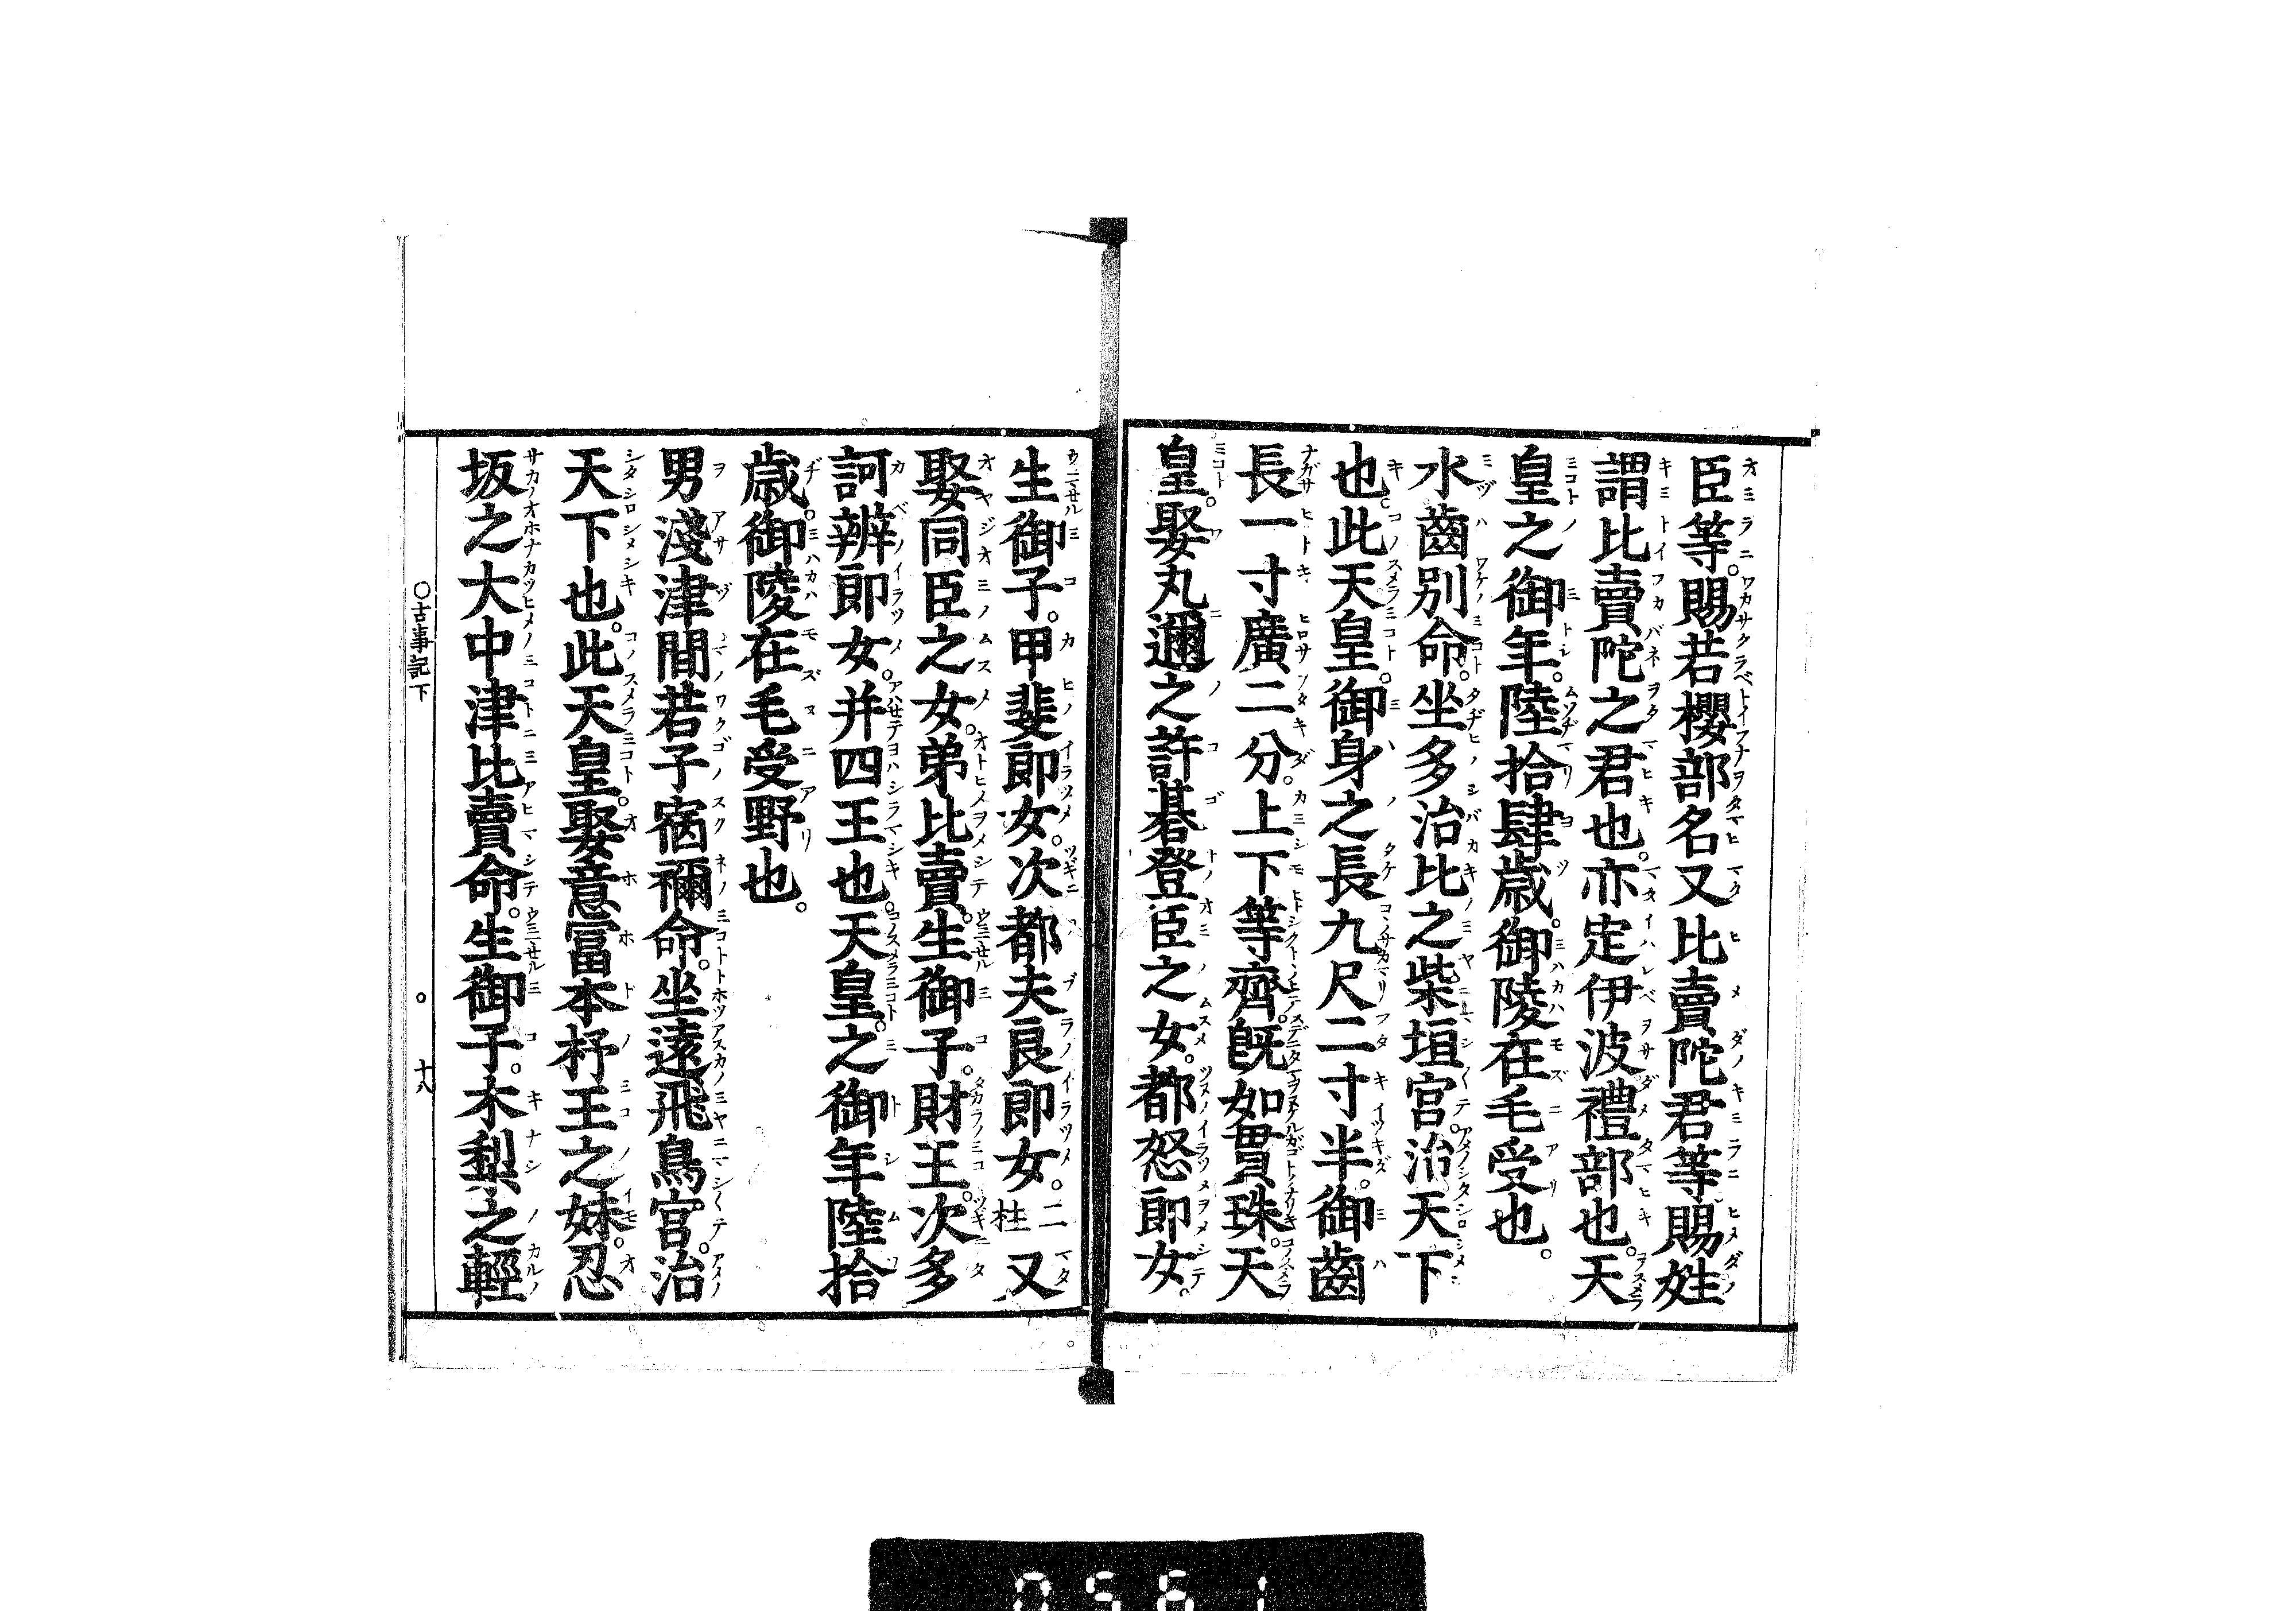 臣等。賜若櫻部名又比賣陀君等賜姓
謂比賣陀之君也。亦定伊波禮部也。天
皇之御年。陸拾肆歳。御陵在毛受也。
水齒別命。坐多治比之柴垣宮。治天下
也。此天皇。御身之長九尺二寸半。御齒
長一寸廣二分。上下等齊。既如貫珠。天
皇。娶丸邇之許碁登臣之女。都怒郎女。
生御子。甲斐郎女。次都夫良郎女。二柱 又
娶同臣之女。弟比賣。生御子。財王。次多
訶辨郎女。并四王也。天皇之御年陸拾
歳。御陵在毛受野也。
男淺津間若子宿禰命。坐遠飛鳥宮。治
天下也。此天皇。娶意富本杼王之妹。忍
坂之大中津比賣命。生御子。木梨之輕
○古事記下 ○ 十八
0561